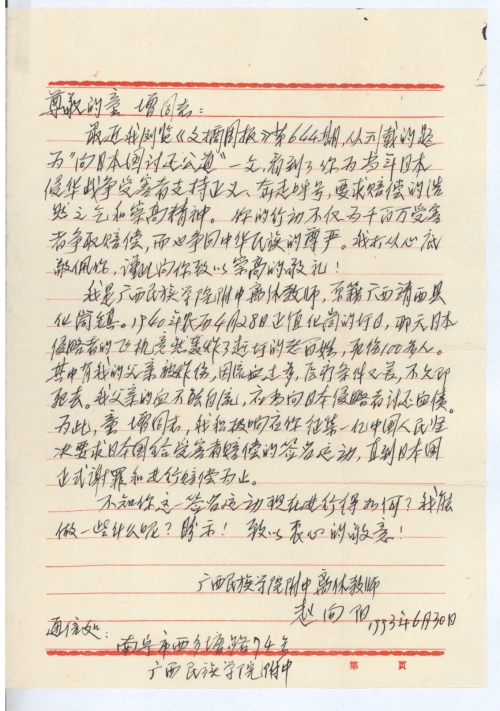 尊敬的童增同志：
最近我浏览《文摘周报》第644期，从刊载的题
为“向日本国讨还公道”一文，看到了你为当年日本
侵华战争受害者支持正义、奔走呼号，要求赔偿的浩
然之气和崇高精神。你的行动不仅为千百万受害
者争取赔偿，而也争回中华民族的尊严。我打从心底
敬佩你，谨此向你致以崇高的敬礼！
我是广西民族学院附中离休教师，原籍广西靖西县
化峒镇。1940年农历4月28日正值化峒的圩日，那天日本
侵略者的飞机竟然轰炸了赶圩的老百姓，死伤100多人。
其中有我的父亲被炸伤，因流血过多，医疗条件又差，不久即
死去。我父亲的血不能白流，应当向日本侵略者讨还血债。
为此，童增同志，我积极响应你征集一亿中国人民坚
决要求日本国给受害者赔偿的签名运动，直到日本国
正式谢罪和进行赔偿为止。
不知你这一签名运动现在进行得如何？我能
做一些什么呢？盼示！致以衷心的敬意！
广西民族学院附中离休教师
赵向阳
1993年6月30日
通信处：
南宁市西乡塘路74号
广西民族学院附中
第 页